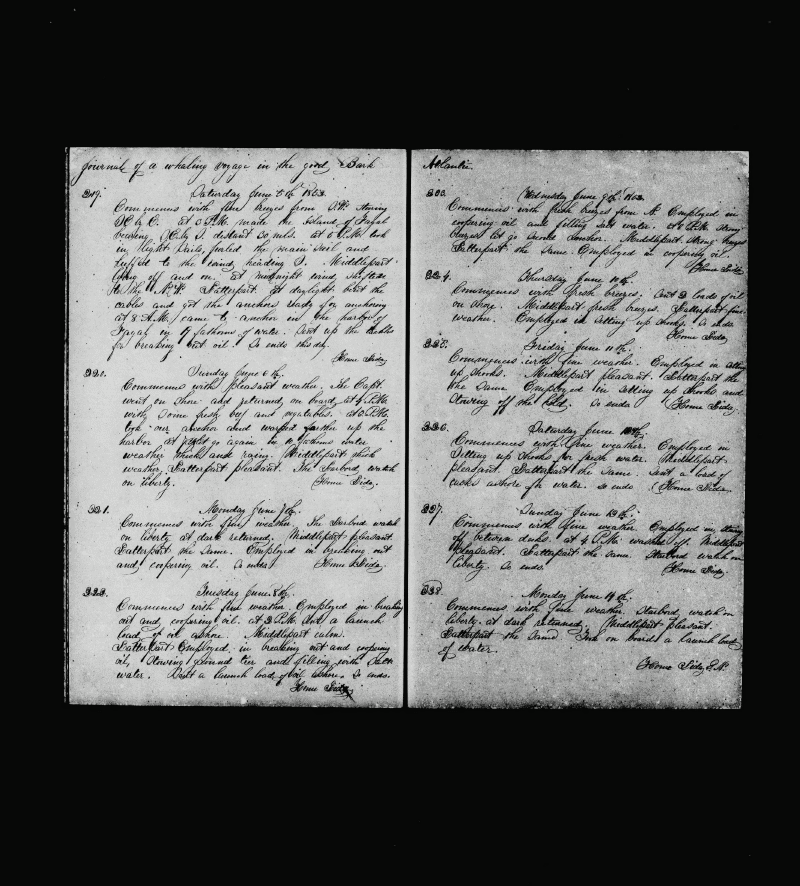 Journal of a whaling voyage in the good Bark
319. Saturday June 5th 1863.
Commences with fine breezes from N.W. steering
at 3 P.M. made the Island of Fayal
bearing distant 30 mls. at 6 P.M. took
in light Sails, furled the main sail and
luffed to the wind, heading S. Middlepart
laying off and on. at midnight wind shifted
to the N.W. Latterpart at daylight bent the
cables and got the anchors ready for anchoring
at 8 A.M. came to anchor in the harbor of
Fayal in 17 fathoms of water. Sent up the tackles
for breaking out oil. So ends this day.
Home Sida
320. Sunday June 6th.
Commences with pleasant weather. The Capt.
went on shore and returned on board at 4 P.M.
with some fresh beef and vegetables. at 5 P.M.
took our anchor and warped farther up the
harbor at let go again in 10 fathoms water
weather thick and rainy. Middlepart thick
weather, Latterpart pleasant. The Larbord watch
on liberty. Home Sida.
321. Monday June 7th.
Commences with fine weather The Larbord watch
on liberty at dark returned. Middlepart pleasant.
Latterpart the Same. Employed in breaking out
and coopering oil. So ends Home Sida.
322. Tuesday June 8th.
Commences with fine weather Employed in breaking
out and coopering oil. at 3 P.M. sent a launch
load of oil ashore. Middlepart calm.
Latterpart Employed in breaking out and coopering
oil, Stowing ground tier and filling with salt
water. Sent a launch load of oil ashore. So ends.
Home Sida
Atlantic.
323. Wednesday June 9th 1863.
Commences with fresh breezes from N. Employed in
coopering oil and filling salt water. at 8 P.M. strong
breezes let go second anchor. Middlepart strong breezes
Latterpart the same. Employed in coopering oil.
Home Sida
324. Thursday June 10th.
Commences with fresh breezes. Sent 2 loads of oil
on shore. Middlepart fresh breezes. Latterpart fine
weather. Employed in setting up shooks. So ends
Home Sida
325. Friday June 11th.
Commences with fine weather. Employed in setting
up shooks. Middlepart pleasant. Latterpart the
the Same Employed in setting up shooks and
stowing off the hold. So ends (Home Sida.
326. Saturday June 12th.
Commences with fine weather. Employed in
Setting up shooks for fresh water. Middlepart
pleasant. Latterpart the Same Sent a load of
casks ashore for water. So ends (Home Sida.
327. Sunday June 13th.
Commences with fine weather Employed in
off between decks. at 4 P.M. washed off. Middlepart
pleasant. Latterpart the same Starbord watch on
liberty. So ends. (Home Sida
328. Monday June 14th.
Commences with fine weather. Starbord watch on
liberty at dark returned. Middlepart pleasant.
Latterpart the Same Took on board a launch load
of water.
Home Sida